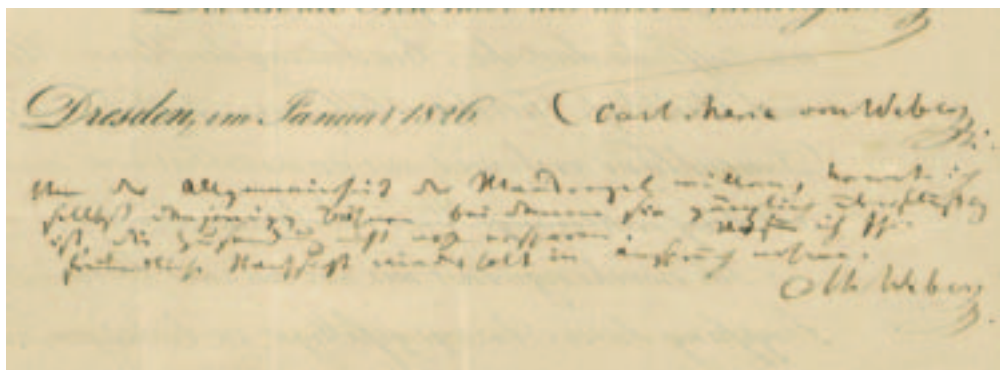 Dresden, im Januar 1826. Carl Maria von Weber
Um der Allgemeinheit der Maasregel willen, konnte ich
selbst derjenigen Bühnen bei denen sie gänzlich überflüßig
ist, die Zusendung nicht ersparen. ich Ihre
freundliche Nachsicht in Anspruch nehme.
CMvWeber